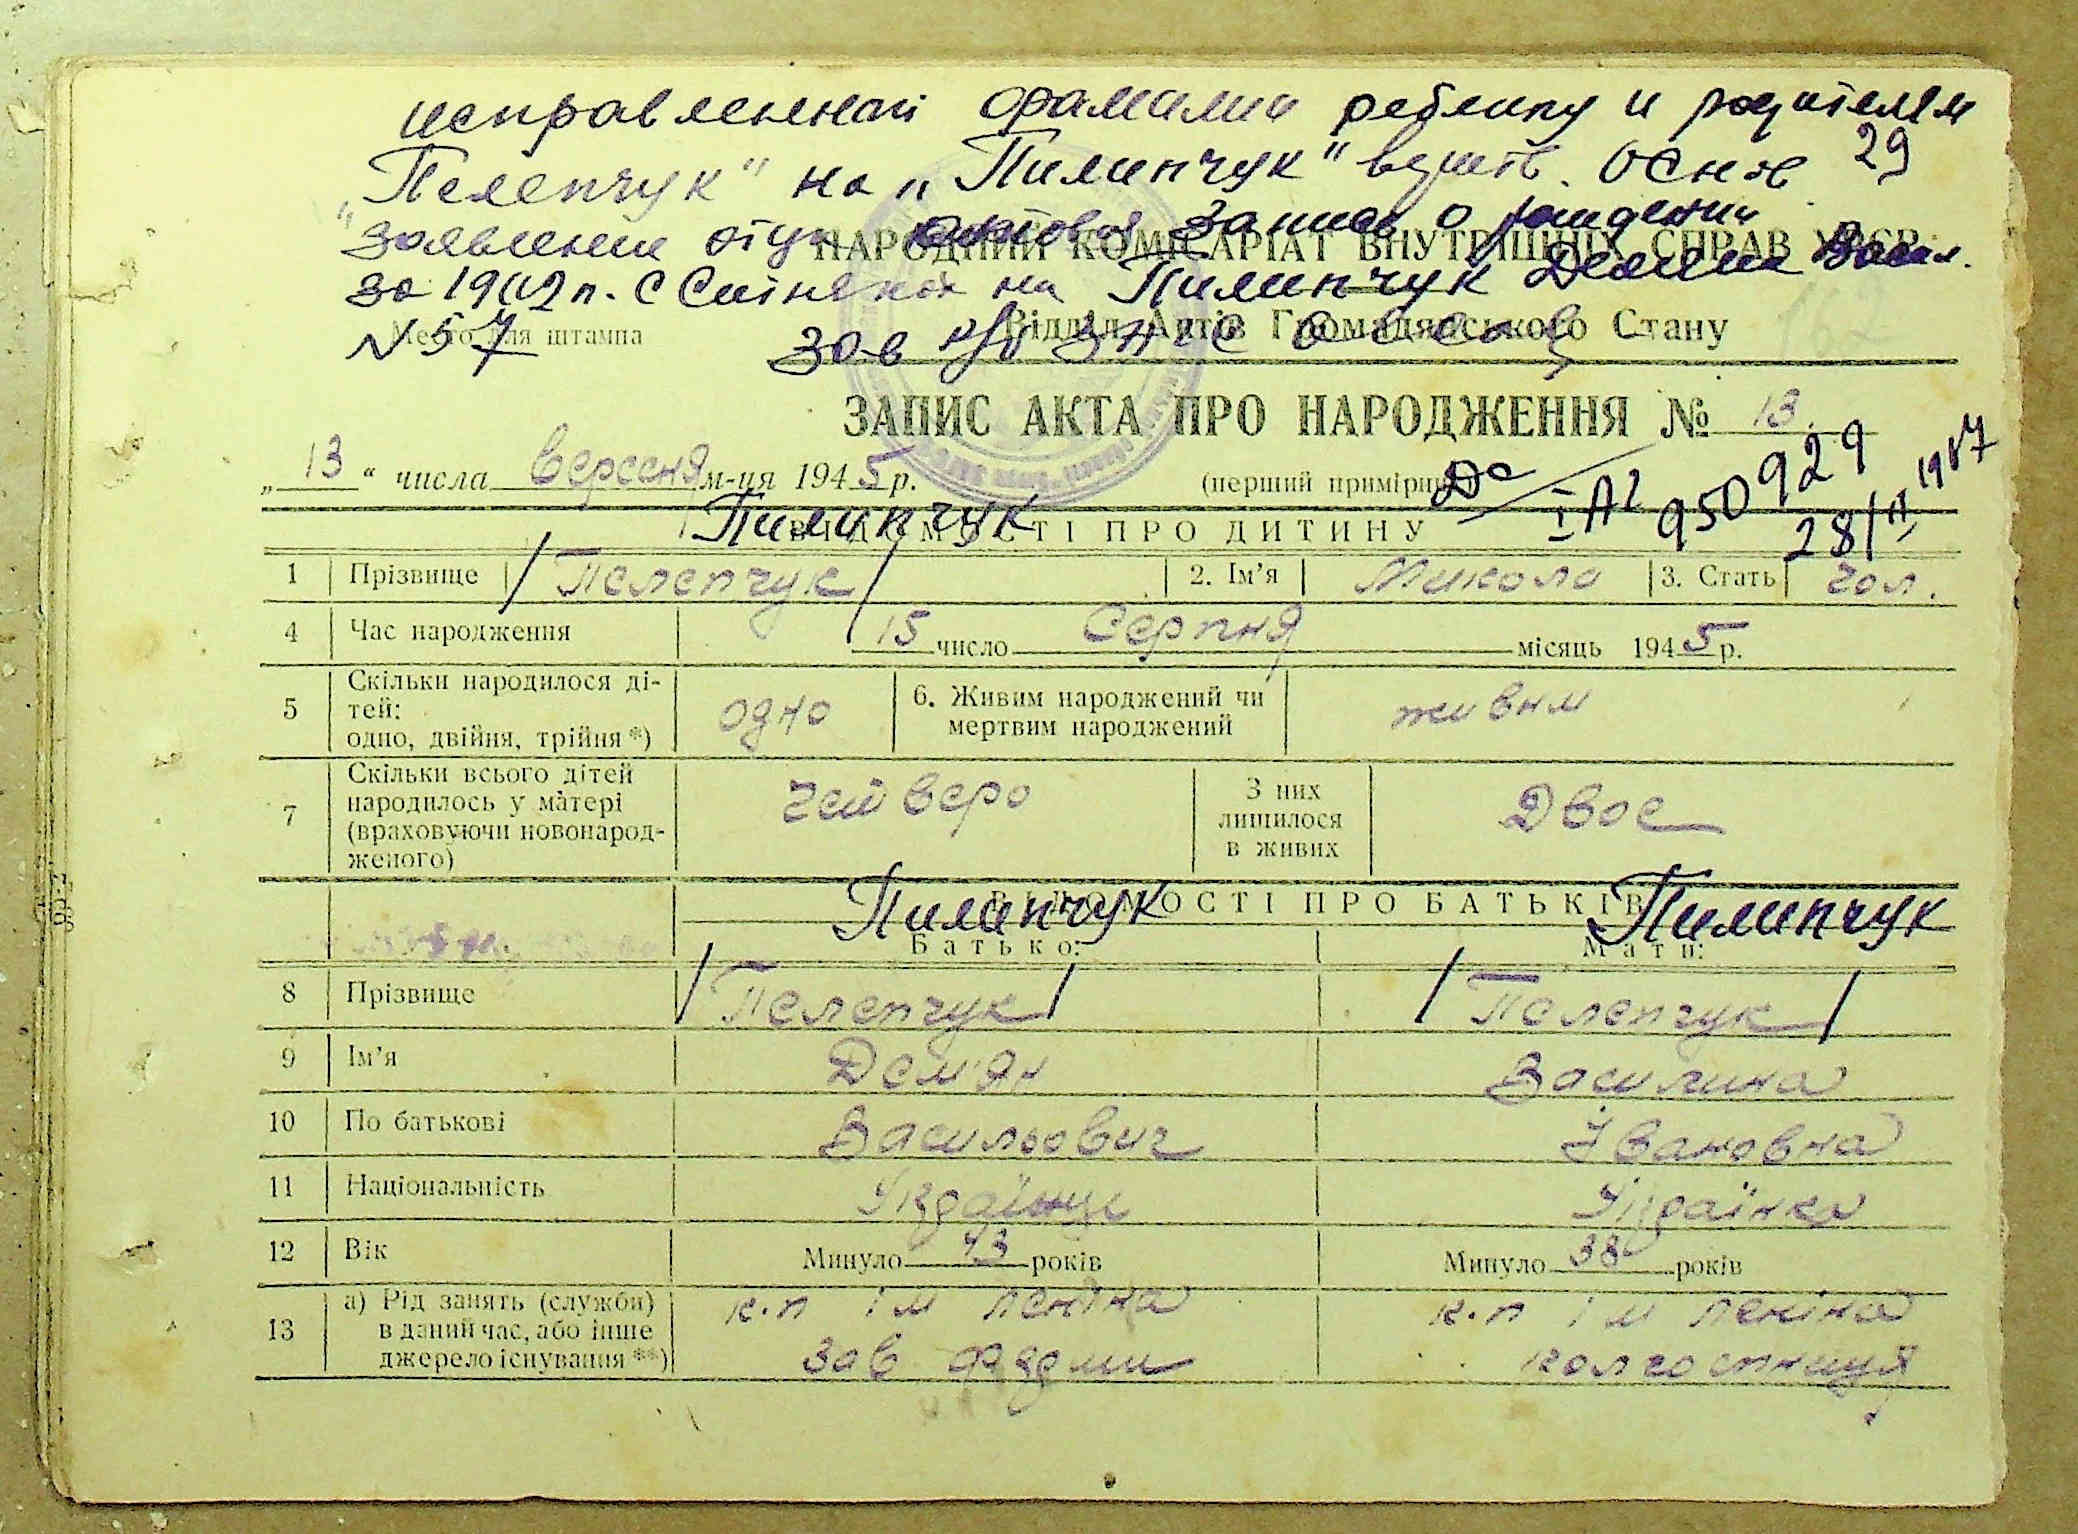 исправленная фамилии ребенку и родителям
"Пелепчук" на "Пилипчук" Основ 29
заявлении отца актовая запись о рождении
за 1902 п. с на Пилипчук Демян Васил.
N 57 зав
НАРОДНИЙ КОМІСАРІАТ ВНУТРІШНІХ СПРАВ УРСР
Место для штампа Відділ Актів Громадянського Стану
ЗАПИС АКТА ПРО НАРОДЖЕННЯ № 13.
„13“ числа вересня м-ця 1945 р. (перший примірник)
І А2 950929
28/ІІ 1957
Пилипчук
ВІДОМОСТІ ПРО ДИТИНУ
1 Прізвище Пелепчук 2. Ім'я Микола 3. Стать чол.
4 Час народження 15 число Серпня місяць 1945 р.
5 Скільки народилося ді-
тей:
одно, двійня, трійня *) одно 6. Живим народжений чи
мертвим народжений живим
7 Скільки всього дітей
народилось у матері
(враховуючи новонарод-
женого) четверо З них
лишилося
в живих Двое
Пилипчук Пилипчук
ВІДОМОСТІ ПРО БАТЬКІВ
Батько: Мати:
8 Прізвище Пелепчук Пелепчук
9 Ім'я Дем'ян Василина
10 По батькові Васильович Івановна
11 Національність Українць Українка
12 Вік Минуло 43 років Минуло 38 років
13 а) Рід занять (служби)
в даний час, або інше
джерело існування **) к.п ім леніна к.п ім леніна
зав ферми колгоспниця